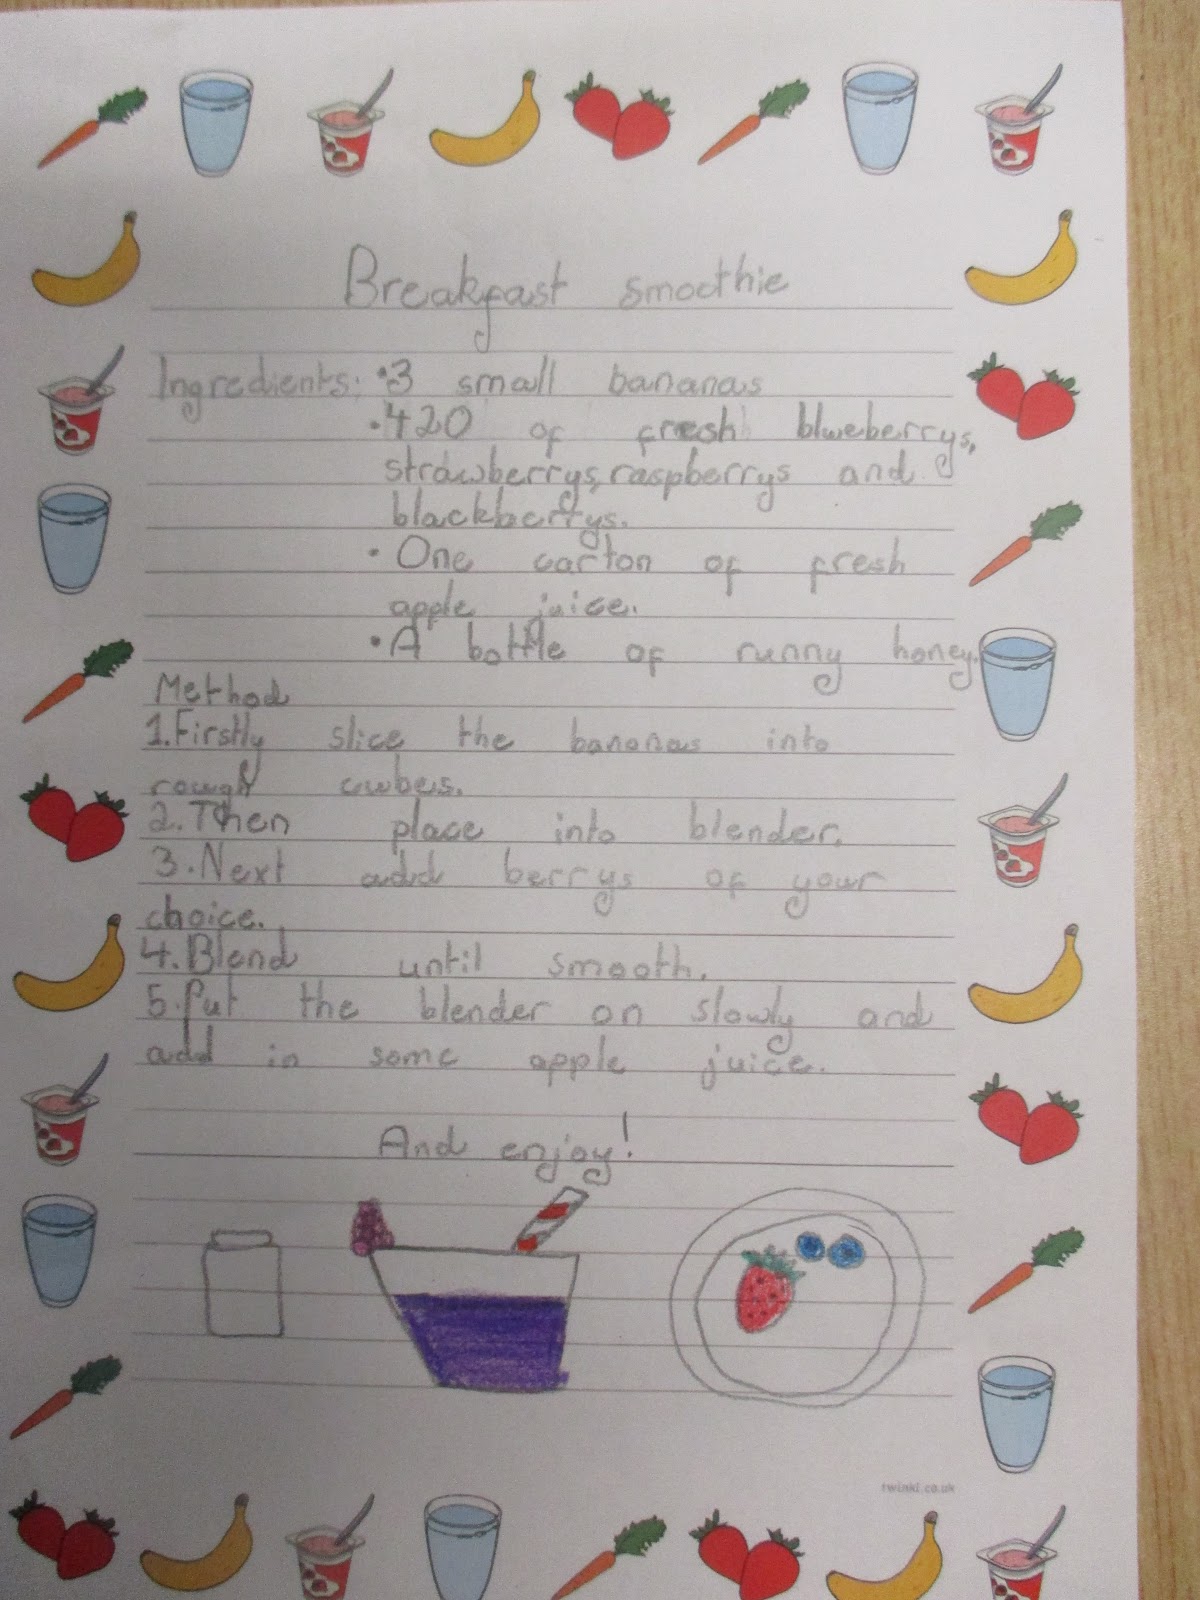 Breakfast smoothie
Ingredients: •3 small bananas
•420 of fresh blueberrys,
strawberrys, raspberrys and
blackberrys.
• One carton of fresh
apple juice.
•A bottle of runny honey.
Method
1.Firstly slice the bananas into
rough cubes.
2.Then place into blender.
3.Next add berrys of your
choice.
4.Blend until smooth.
5.Put the blender on slowly and
add in some apple juice.
And enjoy!
twinkl.co.uk